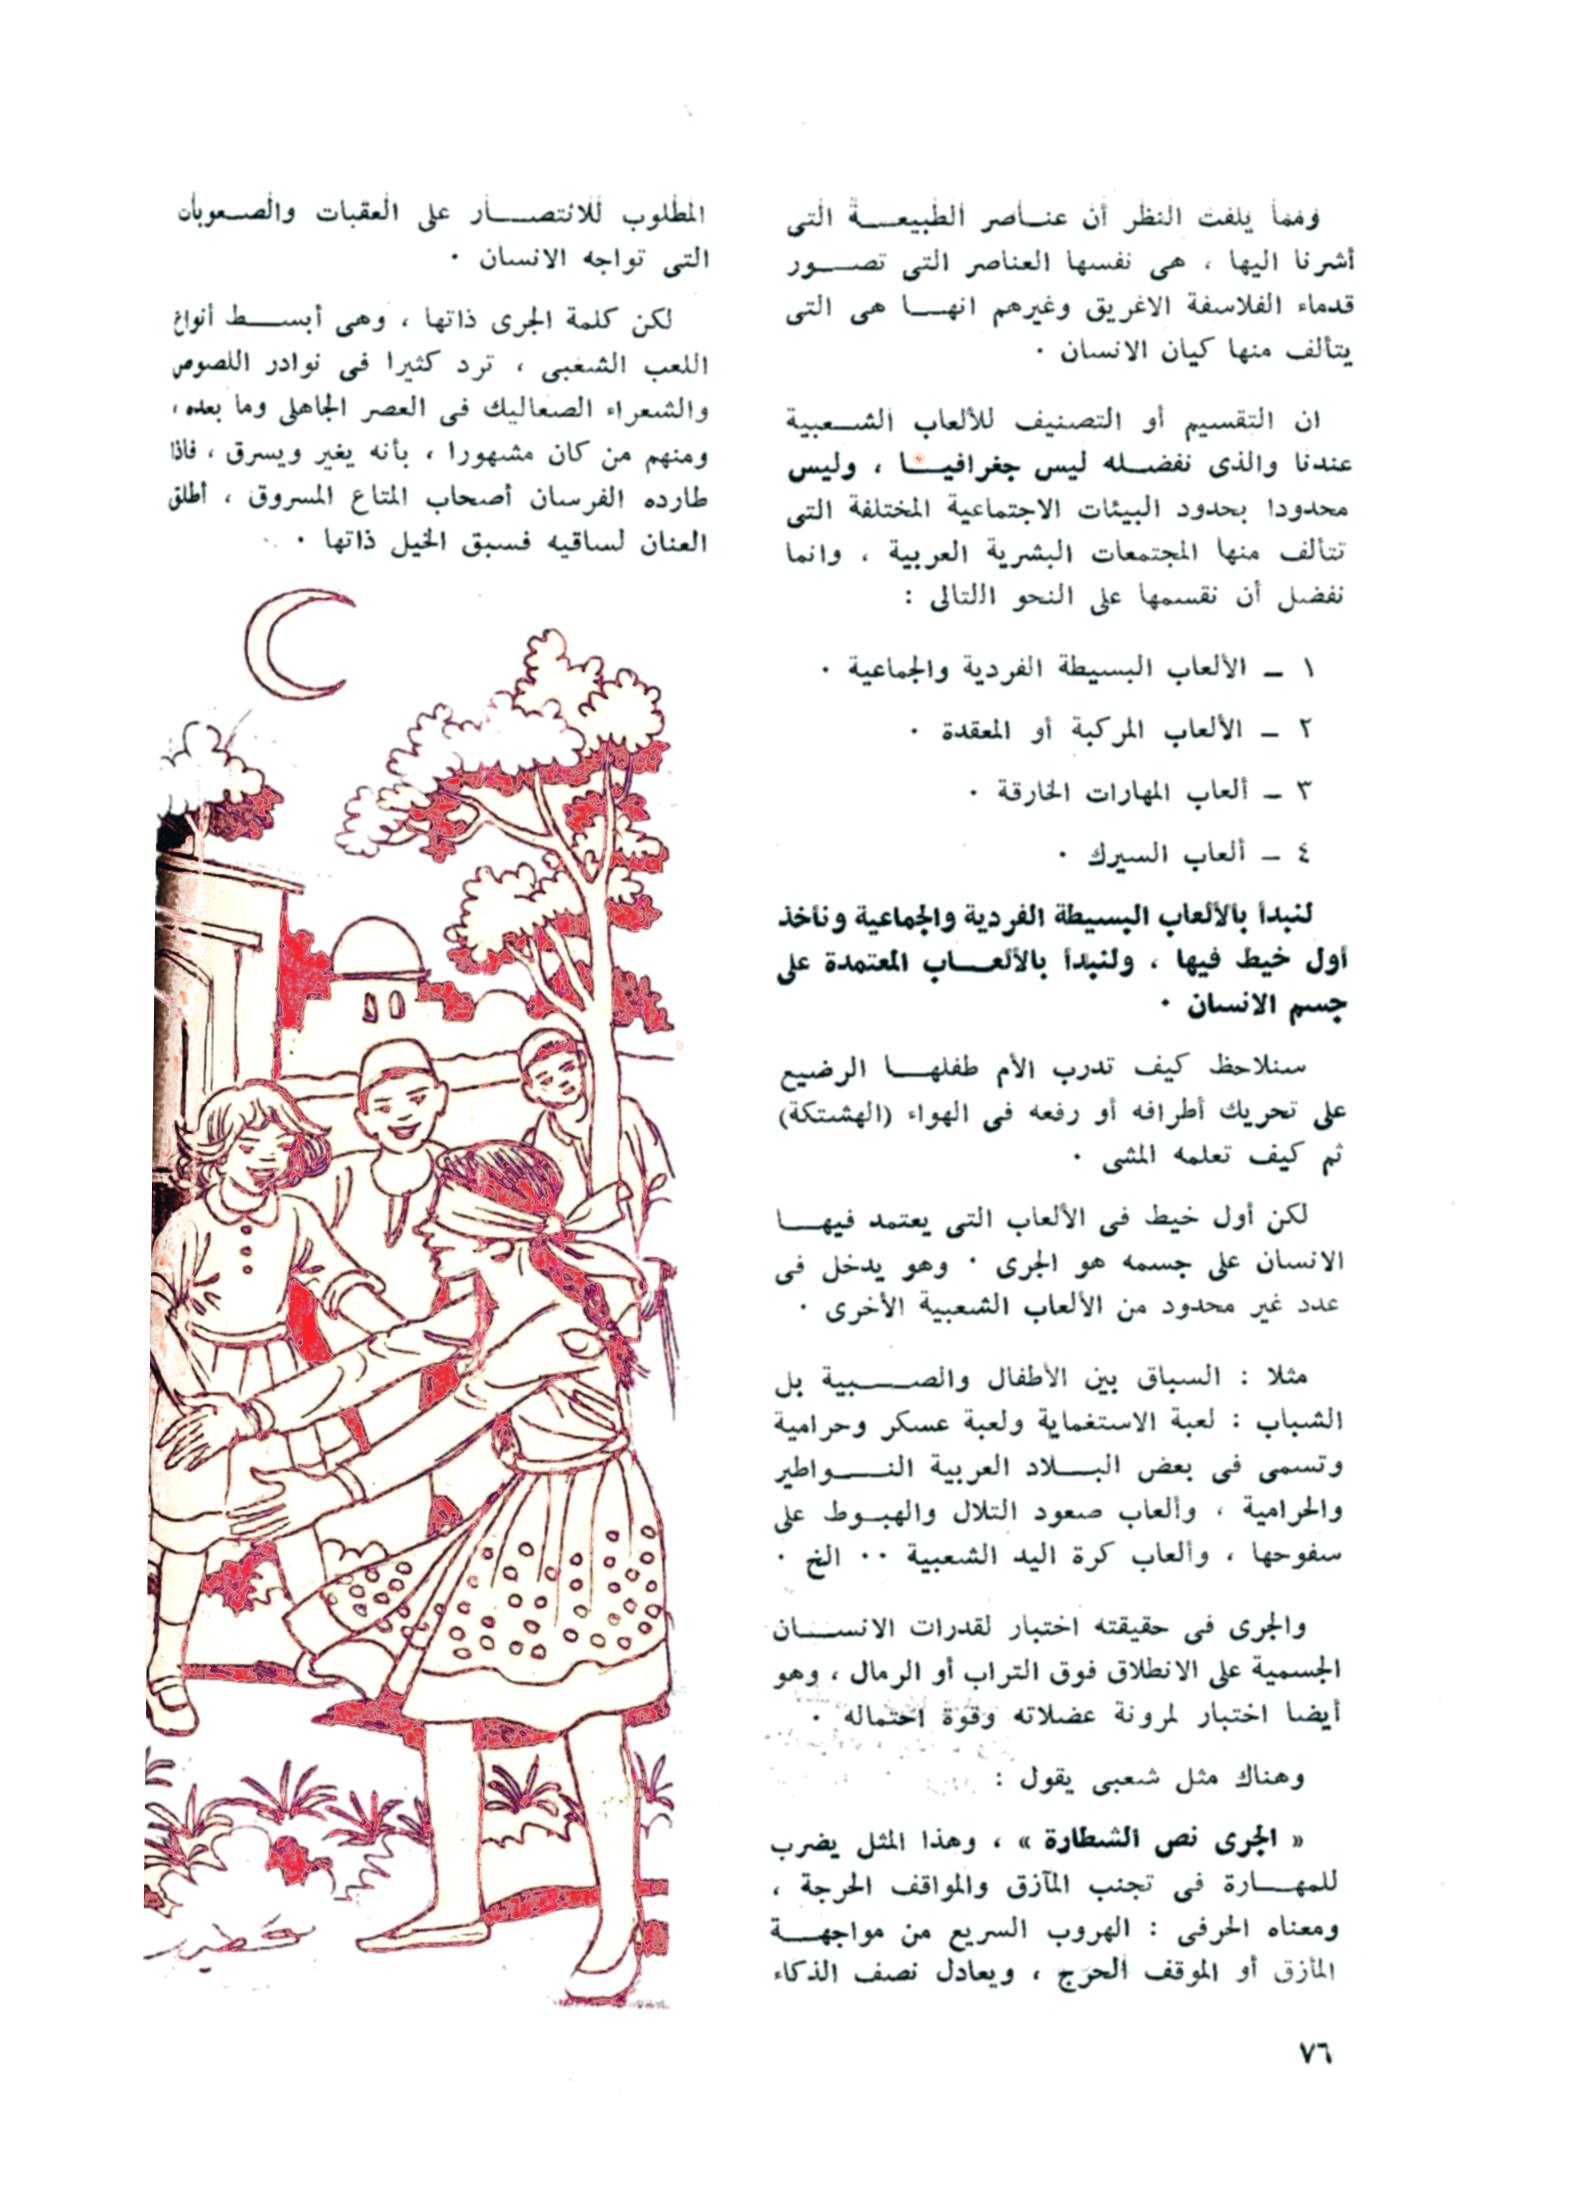 ومما يلفت النظر أن عناصر الطبيعة التى
أشرنا اليها ، هى نفسها العناصر التى تصور
قدماء الفلاسفة الاغريق وغيرهم انها هى التى
يتألف منها كيان الانسان ٠
ان التقسيم أو التصنيف للألعاب الشعبية
عندنا والذى نفضله ليس جغرافيا ، وليس
محدودا بحدود البيئات الاجتماعية المختلفة التى
تتألف منها المجتمعات البشرية العربية ، وانما
نفضل أن نقسمها على النحو االتالى :
١ ــ الألعاب البسيطة الفردية والجماعية ٠
٢ ــ الألعاب المركبة أو المعقدة ٠
٣ ــ ألعاب المهارات الخارقة ٠
٤ ــ ألعاب السيرك ٠
لنبدأ بالألعاب البسيطة الفردية والجماعية ونأخذ
أول خيط فيها ، ولنبدأ بالألعاب المعتمدة على
جسم الانسان ٠
سنلاحظ كيف تدرب الأم طفلها الرضيع
على تحريك أطرافه أو رفعه فى الهواء (الهشتكة)
ثم كيف تعلمه المشى ٠
لكن أول خيط فى الألعاب التى يعتمد فيها
الانسان على جسمه هو الجرى ٠ وهو يدخل فى
عدد غير محدود من الألعاب الشعبية الأخرى ٠
مثلا : السباق بين الأطفال والصبية بل
الشباب : لعبة الاستغماية ولعبة عسكر وحرامية
وتسمى فى بعض البلاد العربية النواطير
والحرامية ، وألعاب صعود التلال والهبوط على
سفوحها ، وألعاب كرة اليد الشعبية ٠٠ الخ ٠
والجرى فى حقيقته اختبار لقدرات الانسان
الجسمية على الانطلاق فوق التراب أو الرمال ، وهو
أيضا اختبار لمرونة عضلاته وقوة احتماله ٠
وهناك مثل شعبى يقول :
« الجرى نص الشطارة » ، وهذا المثل يضرب
للمهارة فى تجنب المآزق والمواقف الحرجة ،
ومعناه الحرفى : الهروب السريع من مواجهة
المأزق أو الموقف الحرج ، ويعادل نصف الذكاء
المطلوب للانتصار على العقبات والصعوبات
التى تواجه الانسان ٠
لكن كلمة الجرى ذاتها ، وهى أبسط أنواع
اللعب الشعبى ، ترد كثيرا فى نوادر اللصوص
والشعراء الصعاليك فى العصر الجاهلى وما بعده ،
ومنهم من كان مشهورا ، بأنه يغير ويسرق ، فاذا
طارده الفرسان أصحاب المتاع المسروق ، أطلق
العنان لساقيه فسبق الخيل ذاتها ٠
٧٦